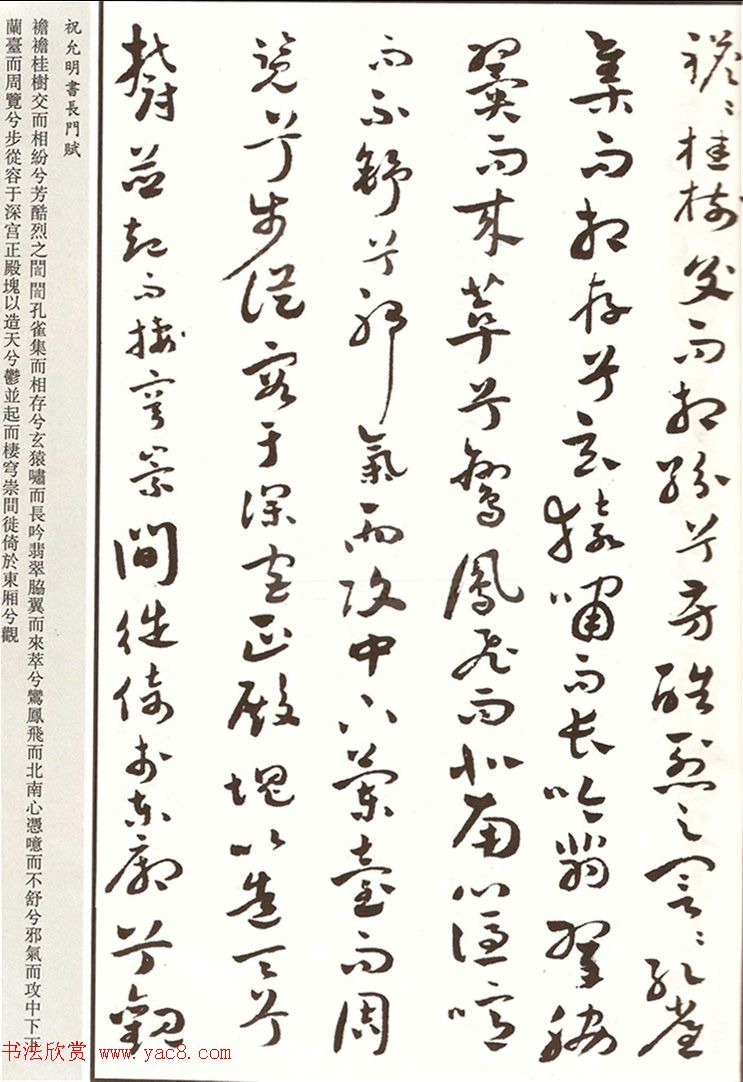 襜〻桂樹交而相紛兮芳酷烈之誾〻孔雀
集而相存兮玄猿嘯而長吟翡翠脇
翼而來萃兮鸞鳳飛而北南心憑噫
而不舒兮邪氣而攻中下蘭臺而周
覽兮步從容于深宫正殿塊以造天兮
鬱並起而棲穹崇間徙倚於東厢兮觀
祝允明書長門賦
襜襜桂樹交而相紛兮芳酷烈之誾誾孔雀集而相存兮玄猿嘯而長吟翡翠脇翼而來萃兮鸞鳳飛而北南心憑噫而不舒兮邪氣而攻中下
蘭臺而周覽兮步從容于深宫正殿塊以造天兮鬱並起而棲穹崇間徙倚於東厢兮觀
书法欣赏 www.yac8.com